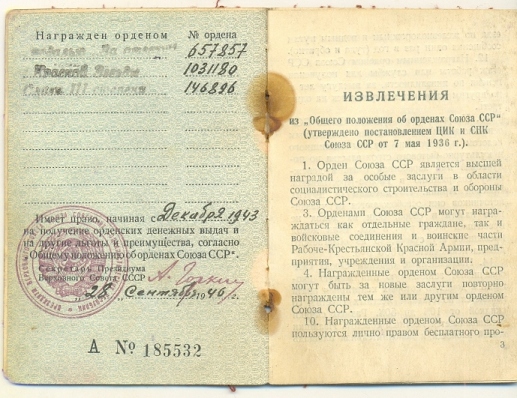 Награжден орденом № ордена
медалью За отвагу 657857
Красной Звезды 1031180
Славы III степени 146896
Имеет право, начиная с Декабря 1943
на получение орденских денежных выдач и
на другие льготы и преимущества, согласно
„Общему положению об орденах Союза ССР“.
Секретарь Президиума
Верховного Совета СССР
„28“ Сентября 1946 г.
А № 185532
ИЗВЛЕЧЕНИЯ
из „Общего положения об орденах Союза ССР“
(утверждено постановлением ЦИК и СНК
Союза ССР от 7 мая 1936 г.).
1. Орден Союза ССР является высшей
наградой за особые заслуги в области
социалистического строительства и обороны
Союза ССР.
3. Орденами Союза ССР могут награж-
даться как отдельные граждане, так и
войсковые соединения и воинские части
Рабоче-Крестьянской Красной Армии, пред-
приятия, учреждения и организации.
4. Награжденные орденом Союза ССР
могут быть за новые заслуги повторно
награждены тем же или другим орденом
Союза ССР.
10. Награжденные орденом Союза ССР
пользуются лично правом бесплатного про-
3